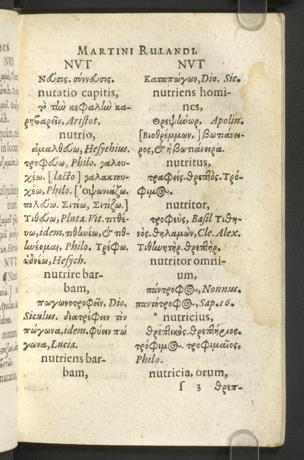 MARTINI RULANDI.
NVT
Νεῦσις. σύννευσις.
nutatio capitis,
τὸ τὴν κεφαλὴν κα-
ρηβαρεῖν, Aristot.
nutrio,
Hesychius.
τροφέω, Philo. γαλου-
χέω. [lacto] γαλακτου-
χέω, Philo. [Ὀψωνιάζω.
Σιτίω, Σιτίζω.]
Τιθέω, Pluta. Vit. τιθή-
νω, idem. τιθηλεύω, & τιθ-
Philo. Τρέφω.
Hesych.
nutrire bar-
bam,
πωγωνοτροφεῖν, Dio.
Siculus. διατρέφειν τὸν
πώγωνα, idem. φύειν πώ
γωνα, Lucia.
nutriens bar-
bam,
NVT
Καταπώγων, Dio. Sic.
nutriens homi-
nes,
Θρεψίνωρ, Apolin.
[Βιοθρέμμων.] βωτιάνει-
ρος, & βωτιάνειρα.
nutritus,
τραφεὶς. θρεπτὸς. Τρό-
φιμος.
nutritor,
τροφεὺς, Basil Τιθη-
νὸς. θηλαμών, Cle. Alex.
Τιθηνητὴρ. θρεπτὴρ.
nutritor omni-
um,
πάντροφος, Nonnus.
παντότροφος, Sap. 16.
* nutricius,
θρεπτικὸς. θρεπτήριος.
τρόφιμος. τροφιμαῖος,
Philo.
nutricia, orum,
ſ 3 θρεπ-